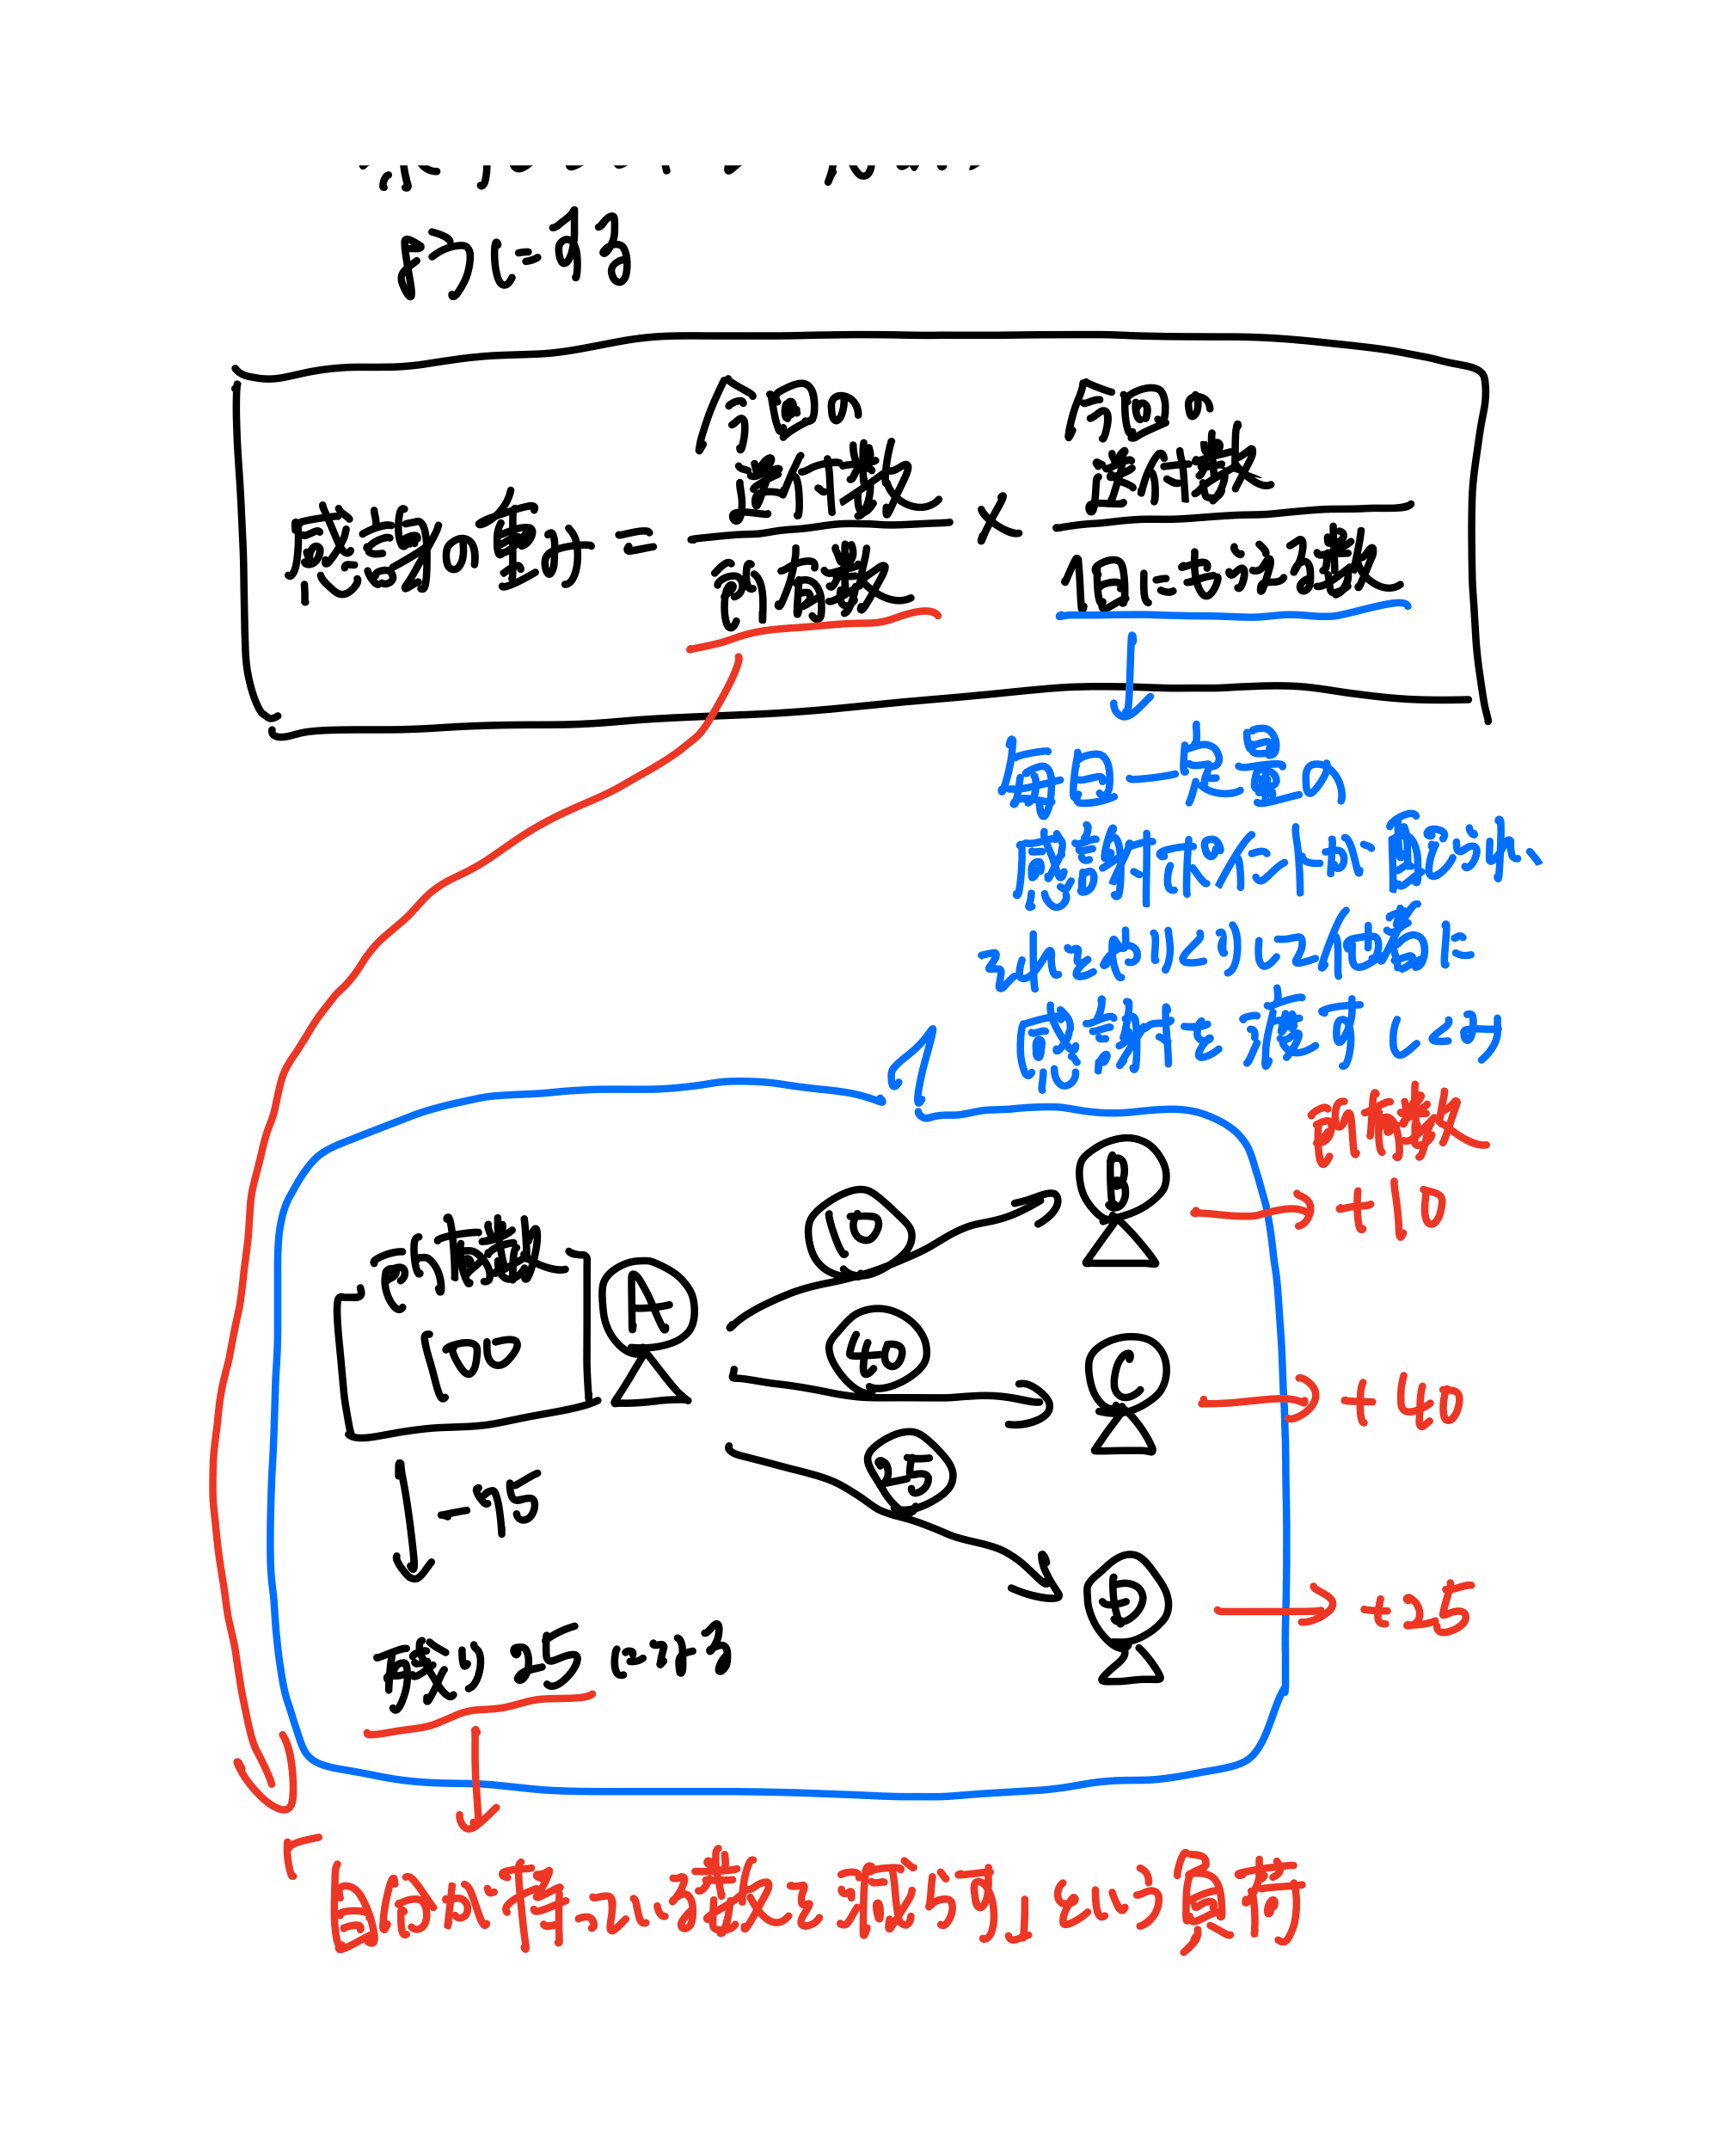 ようにする
今回の
送付数
今回の
送付数
感謝の重み = ―― × ――
所有数
1日にもらえる数
毎日一定量の
感謝状が全体に配られ、
それをやりくりして他者に
感謝状を渡すしくみ
所有数
B
10
+10
所有数
100
A
40
C
+40
25
-75
D
+25
残り25になる
「自分が持っている数を減らす」という負荷